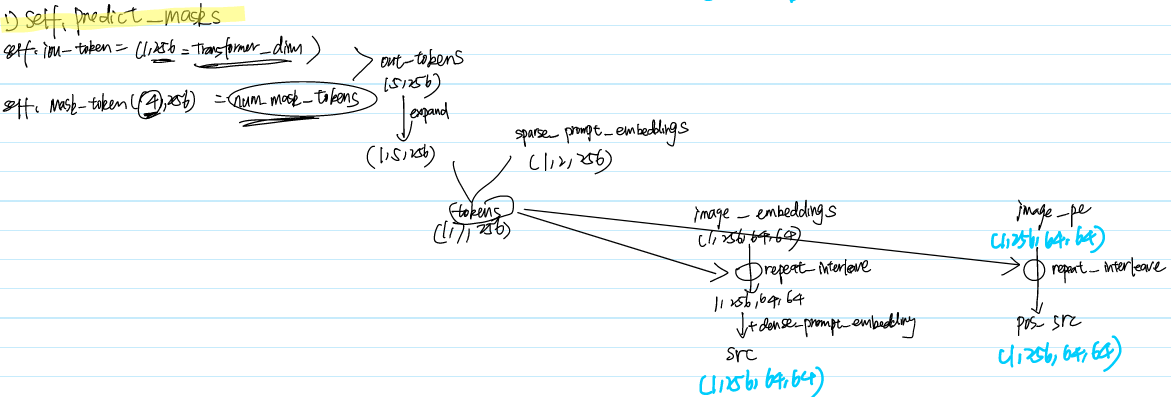 1) self. predict_masks
self. iou_token = (1,256 = Transformer_dim)
out_tokens
(5,256)
self. mask_token((4),256) = num_mask_tokens
expand
(1,5,256)
sparse_prompt_embeddings
(1,2,256)
tokens
(1,7,256)
image_embeddings
(1,256,64,64)
repeat_interleave
1,256,64,64
+dense_prompt_embedding
src
(1,256,64,64)
image_pe
(1,256,64,64)
repeat_interleave
pos_src
(1,256,64,64)